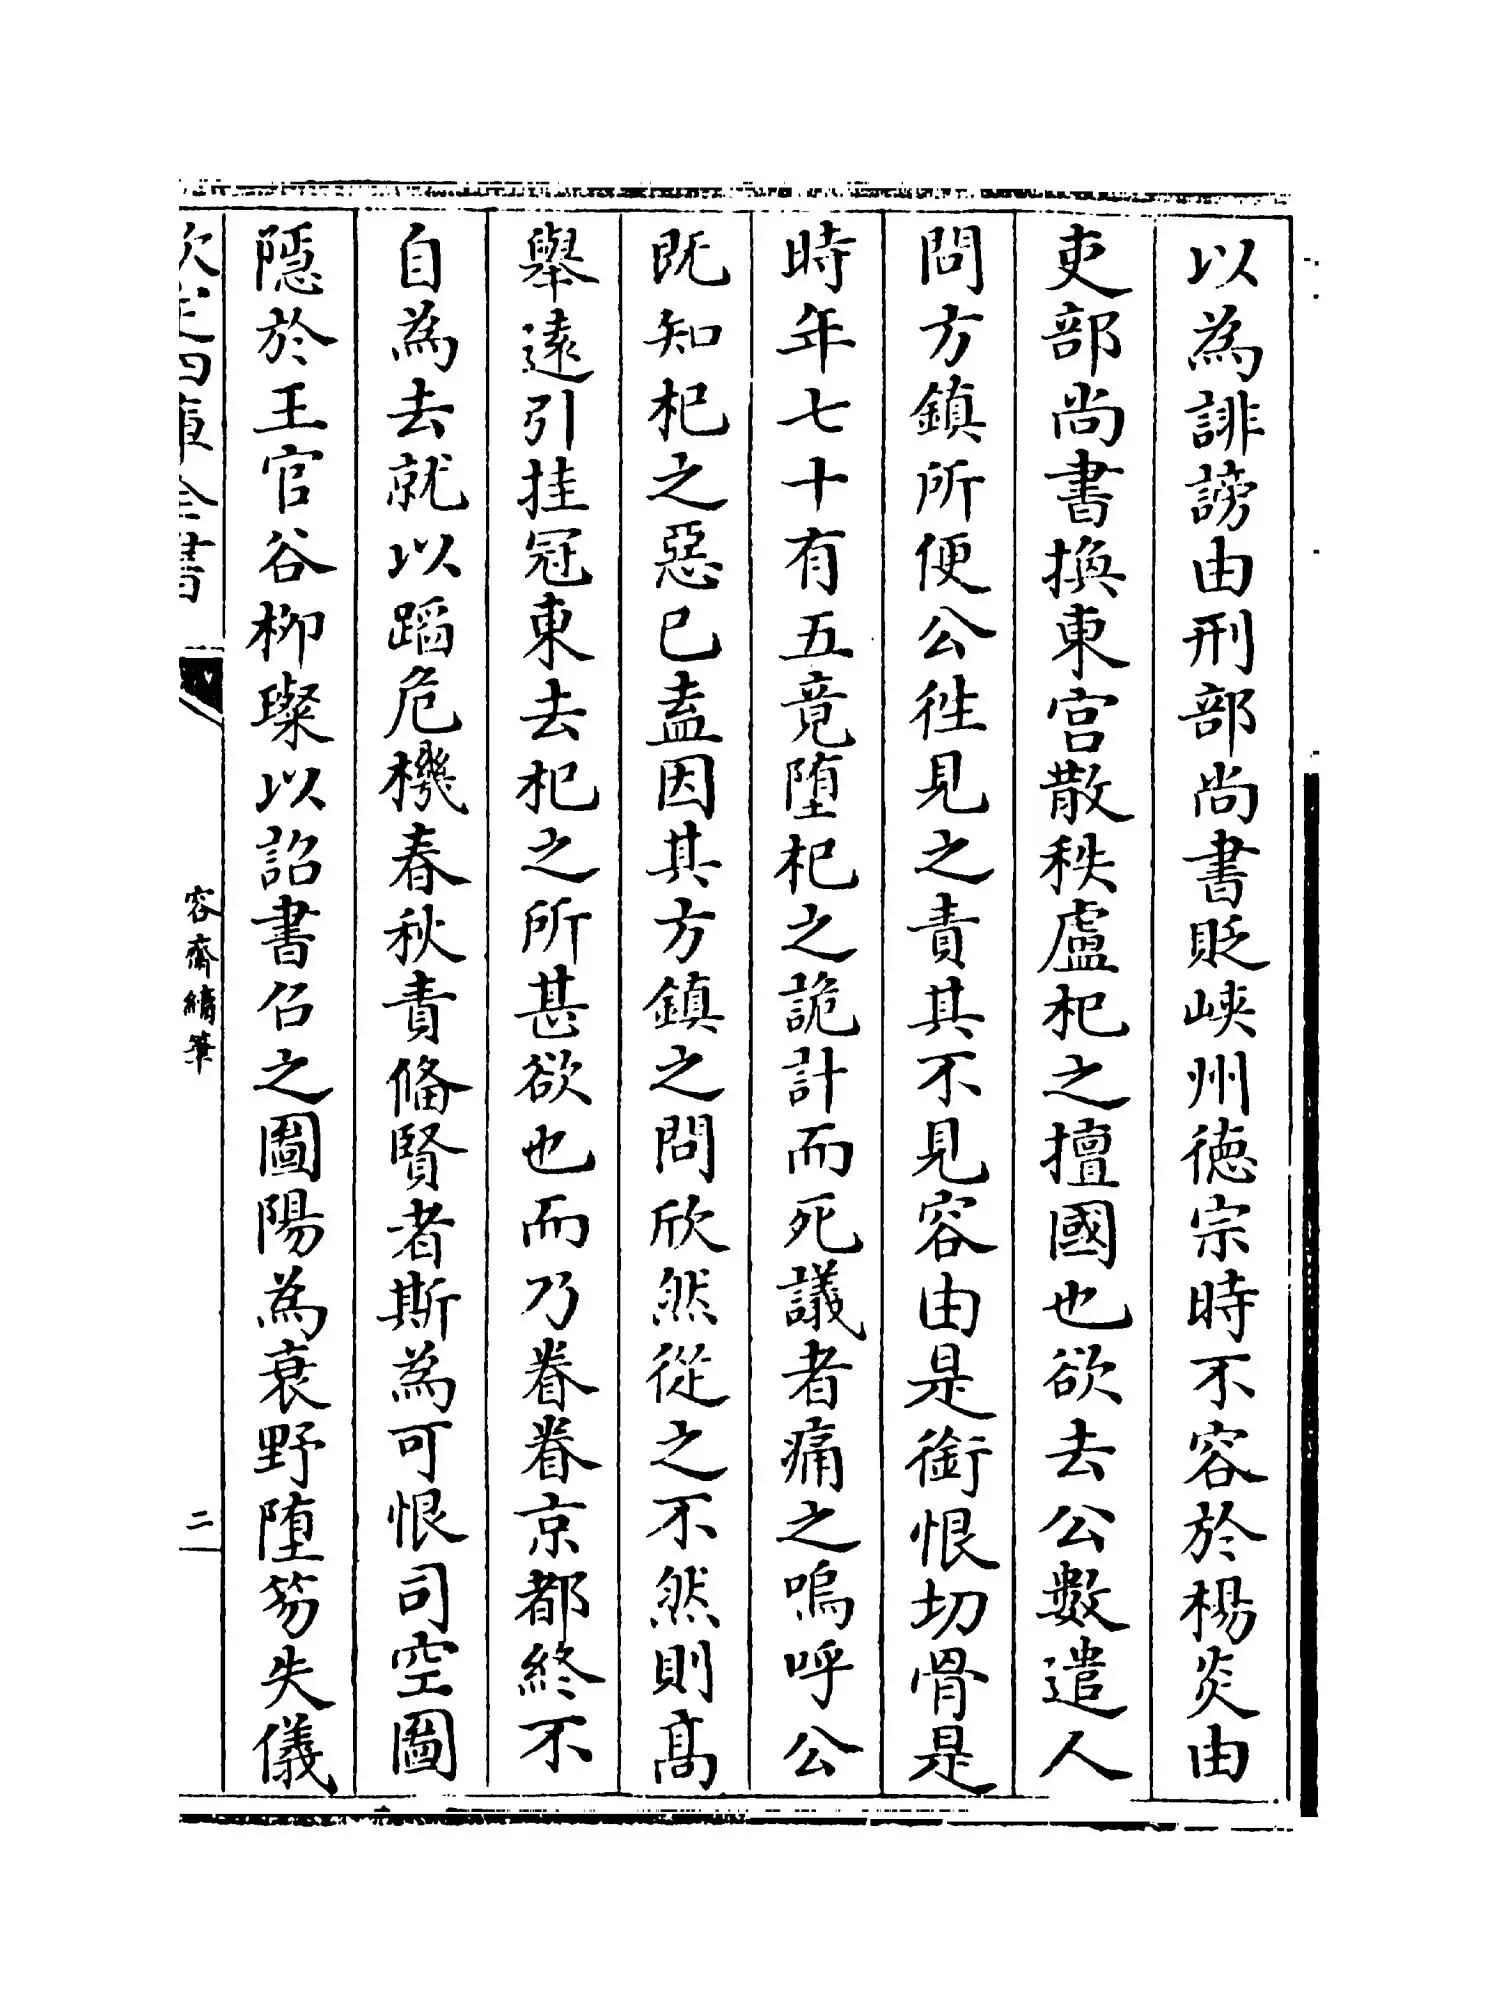 以為誹謗由刑部尚書貶峽州徳宗時不容於楊炎由
吏部尚書換東宫散秩盧杞之擅國也欲去公數遣人
問方鎮所便公徃見之責其不見容由是銜恨切骨是
時年七十有五竟堕杞之詭計而死議者痛之嗚呼公
既知杞之惡已盍因其方鎮之問欣然從之不然則髙
舉遠引挂冠東去杞之所甚欲也而乃眷眷京都終不
自為去就以蹈危機春秋責備賢者斯為可恨司空圖
隱於王官谷柳璨以詔書召之圖陽為衰野堕笏失儀
欽定四庫全書
容齋續筆
二